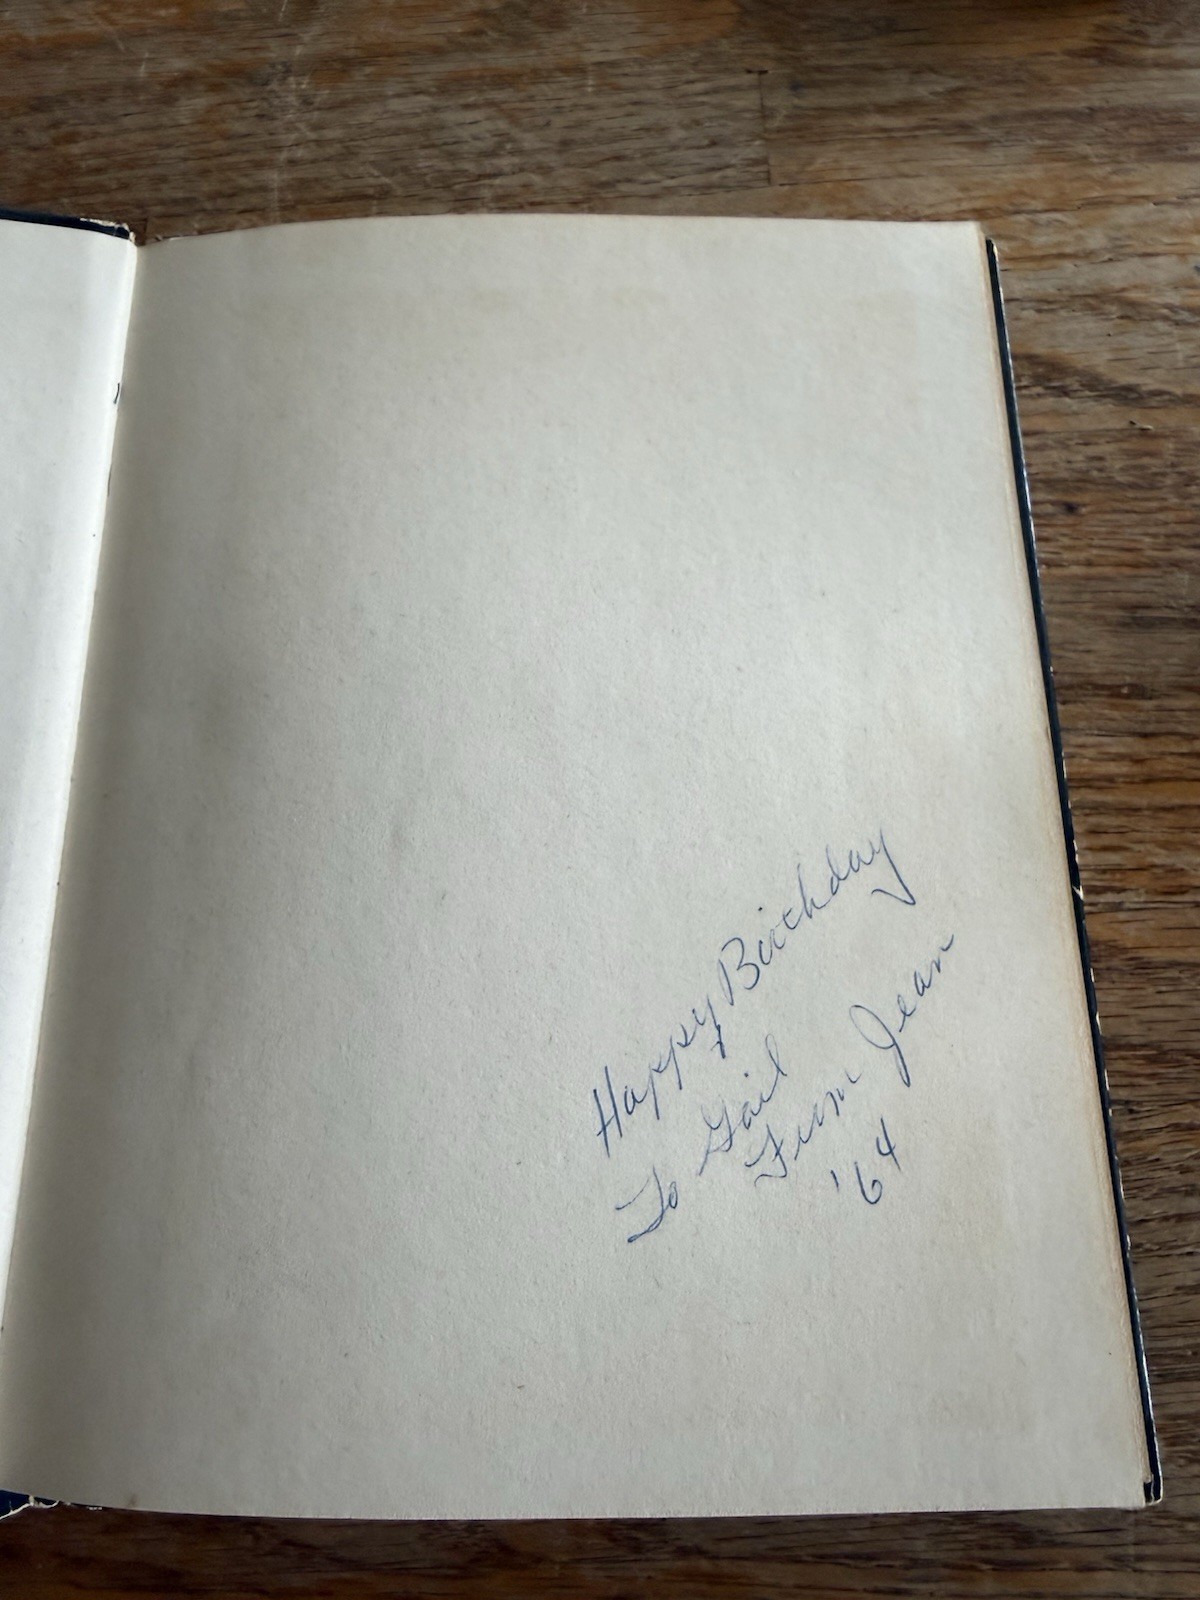 Happy Birthday
To Gail
From Jean
'64